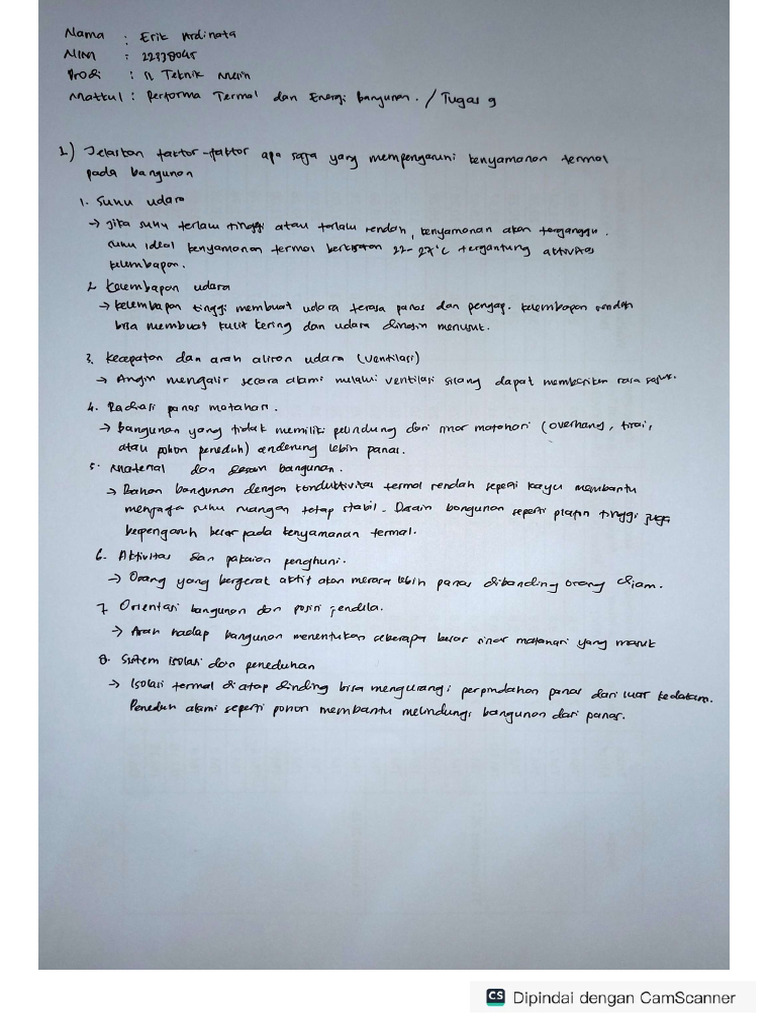 Nama : Erik Ardinata
NIM : 22338045
Prodi : S1 Teknik Mesin
Matkul : Performa Termal dan Energi bangunan. / Tugas 9
1) Jelaskan faktor-faktor apa saja yang mempengaruhi kenyamanan termal
pada bangunan
1. Suhu udara
→ Jika suhu terlalu tinggi atau terlalu rendah, kenyamanan akan terganggu.
suhu ideal kenyamanan termal berkisaran 22-27°C tergantung aktivitas
kelembapan.
2. Kelembapan udara
→ kelembapan tinggi membuat udara terasa panas dan pengap. kelembapan rendah
bisa membuat kulit kering dan udara dingin menusuk.
3. Kecepatan dan arah aliran udara (ventilasi)
→ Angin mengalir secara alami melalui ventilasi silang dapat memberikan rasa sejuk.
4. Radiasi panas matahari.
→ bangunan yang tidak memiliki pelindung dari sinar matahari (overhang, tirai,
atau pohon peneduh) cenderung lebih panas.
5. Material dan desain bangunan.
→ Bahan bangunan dengan konduktivitas termal rendah seperti kayu membantu
menjaga suhu ruangan tetap stabil. Desain bangunan seperti plafon tinggi juga
berpengaruh besar pada kenyamanan termal.
6. Aktivitas dan pakaian penghuni.
→ Orang yang bergerak aktif akan merasa lebih panas dibanding orang diam.
7. Orientasi bangunan dan posisi jendela.
→ Arah hadap bangunan menentukan seberapa besar sinar matahari yang masuk
8. Sistem isolasi dan peneduhan
→ Isolasi termal di atap dinding bisa mengurangi perpindahan panas dari luar kedalam.
Peneduh alami seperti pohon membantu melindungi bangunan dari panas.
CS Dipindai dengan CamScanner